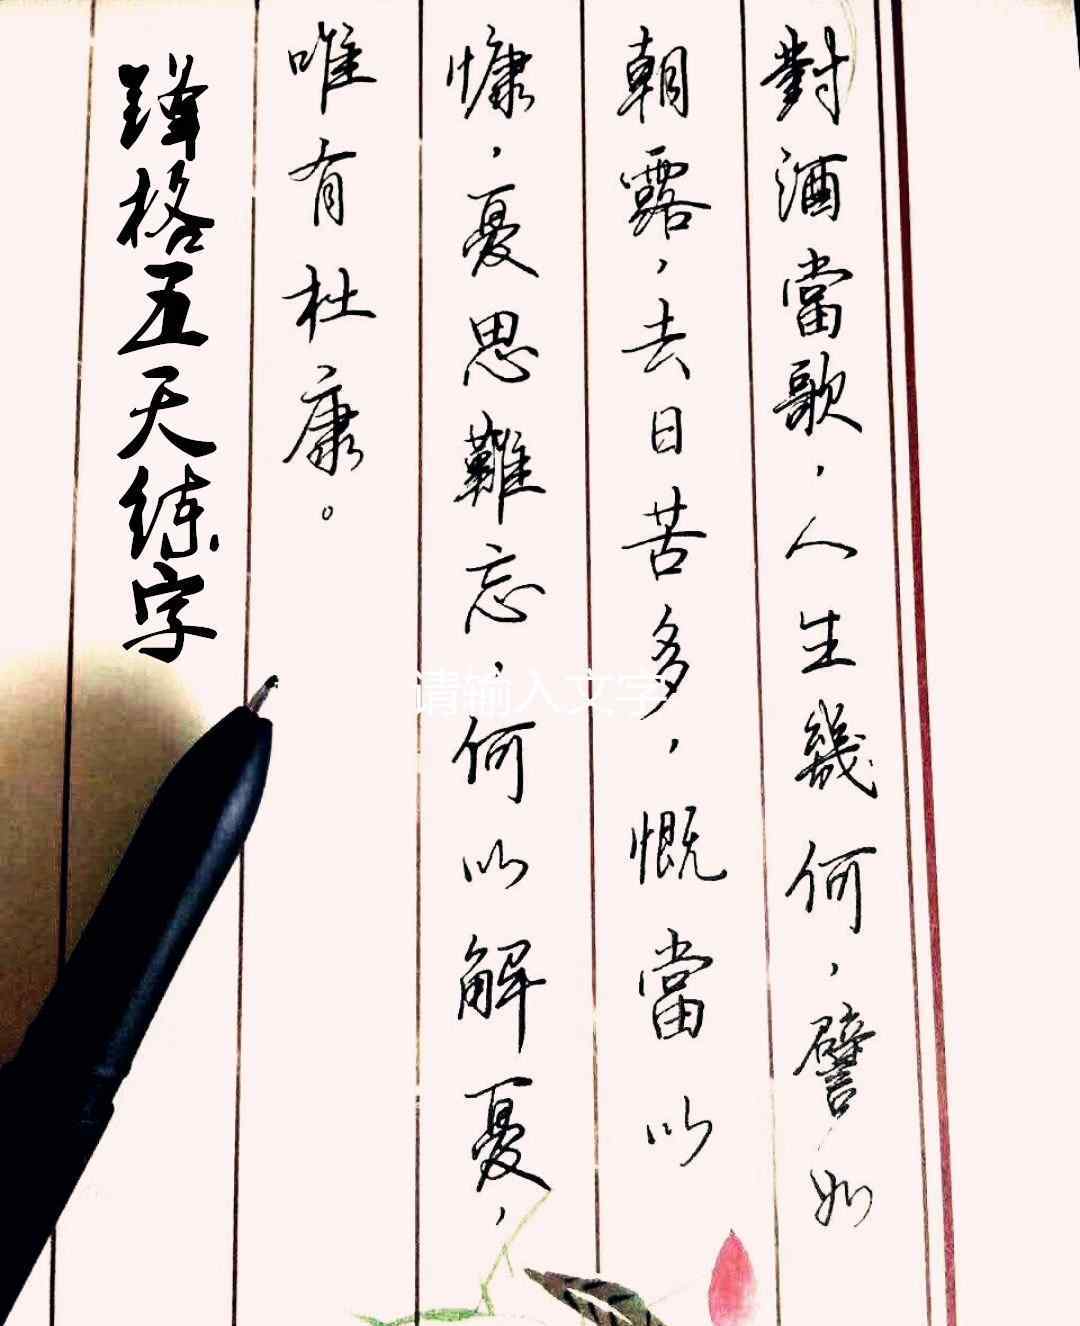 對酒當歌，人生幾何，譬如
朝露，去日苦多，慨當以
慷，憂思難忘，何以解憂，
唯有杜康。
鋒格五天练字
请输入文字